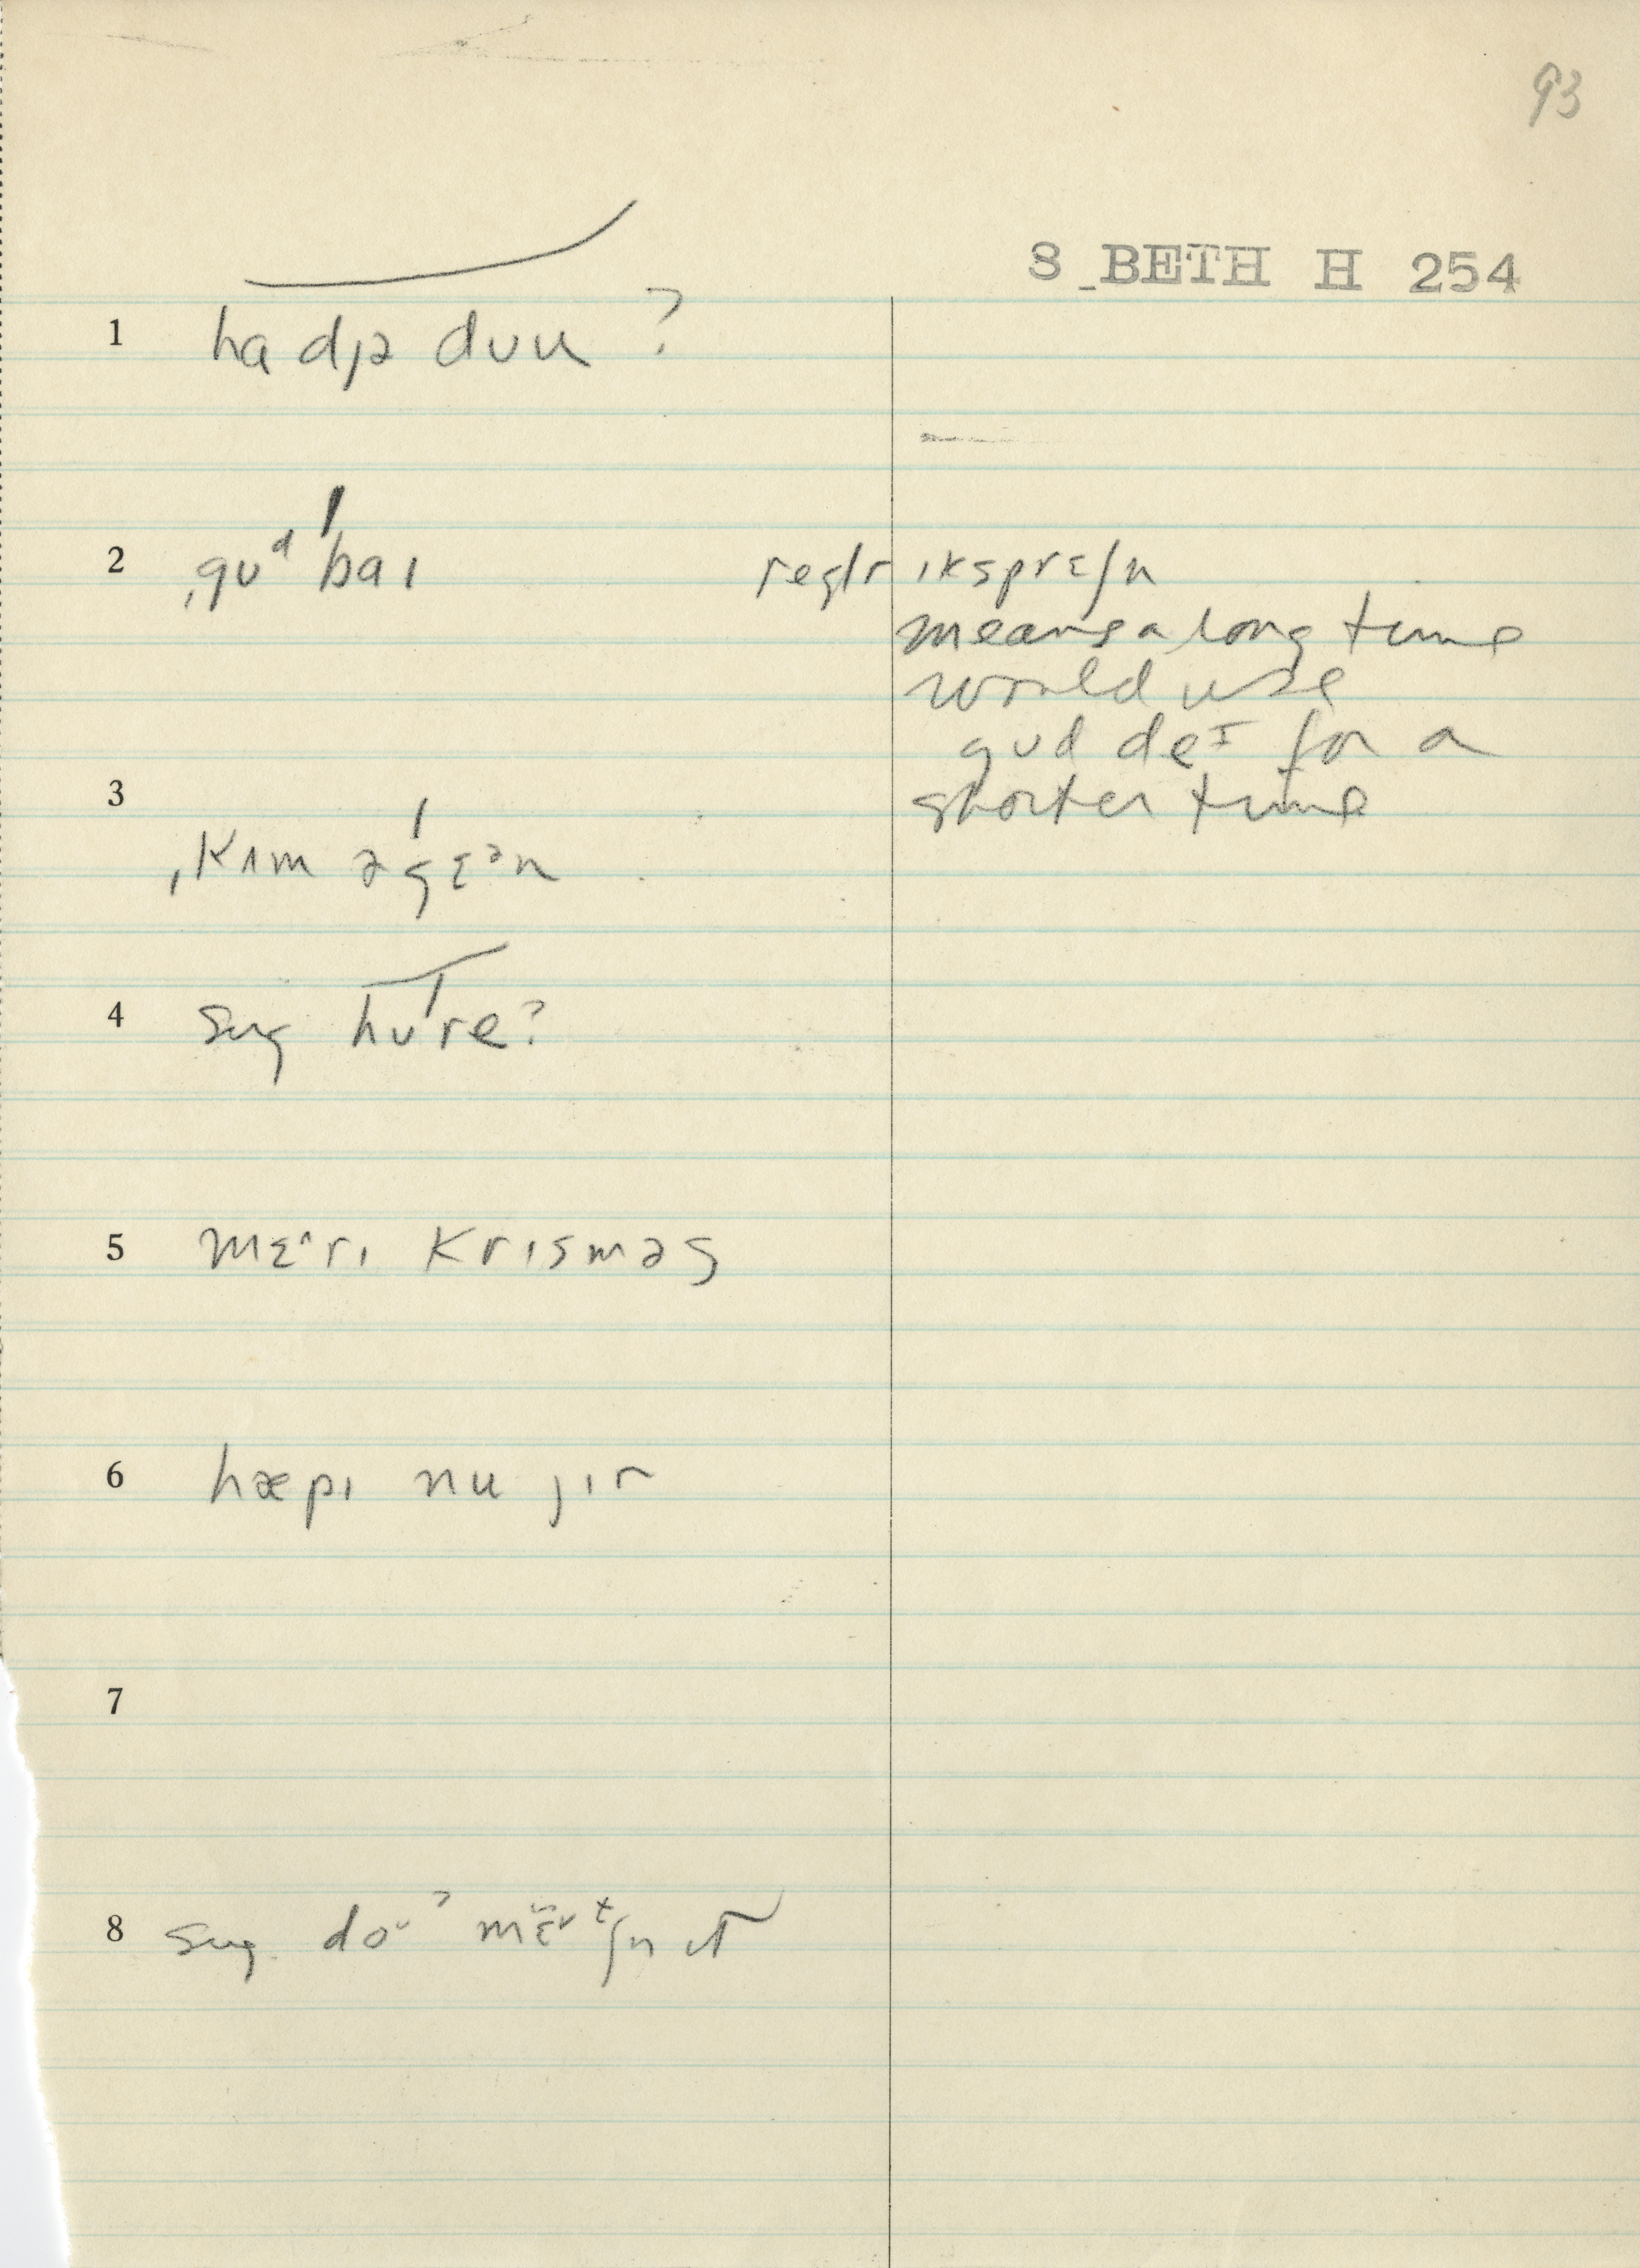 93
S BETH H 254
1 ha djə dʊu ?
2 ˌgʊᵈ ˈbaɪ
reglr ɪksprɛʃn
means a long time
would use
gʊd deᴵ for a
shorter time
3 ˌkʌm əˈgɛᵊn
4 sug hʊˈre?
5 mɛ^rɪ krɪsməs
6 hæpɪ nu jɪr
7
8 sug.